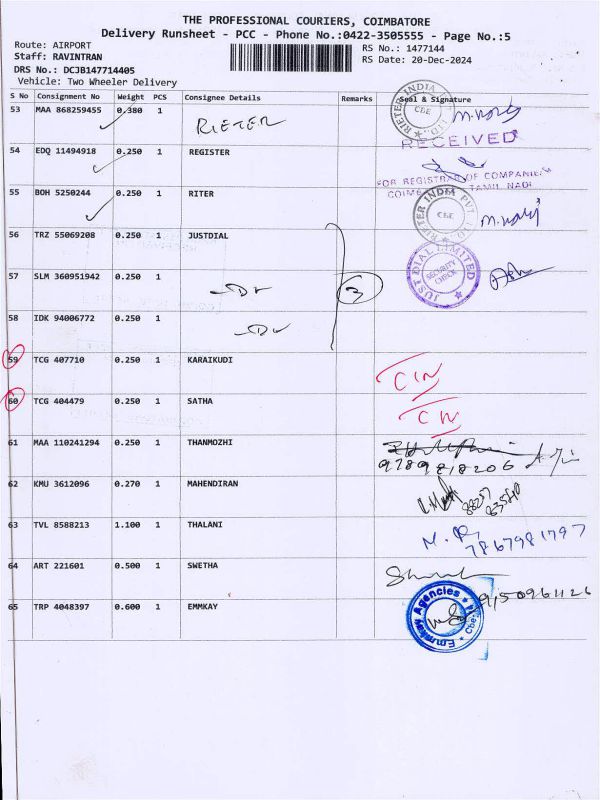 THE PROFESSIONAL COURIERS, COIMBATORE
Delivery Runsheet - PCC - Phone No.:0422-3505555 - Page No.:5
Route: AIRPORT
RS No.: 1477144
Staff: RAVINTRAN
RS Date: 20-Dec-2024
DRS No.: DCJB147714405
Vehicle: Two Wheeler Delivery
S No Consignment No Weight PCS Consignee Details Remarks Seal & Signature
53 MAA 868259455 0.380 1 RIETER
RIETER INDIA CBE
RECEIVED
54 EDQ 11494918 0.250 1 REGISTER
FOR REGISTRAR OF COMPANIES
TAMIL NADU
55 BOH 5250244 0.250 1 RITER
RIETER INDIA PVT. LTD. CBE
56 TRZ 55069208 0.250 1 JUSTDIAL
JUST DIAL LIMITED SECURITY CHECK
57 SLM 360951942 0.250 1
3
58 IDK 94006772 0.250 1
59 TCG 407710 0.250 1 KARAIKUDI
60 TCG 404479 0.250 1 SATHA
61 MAA 110241294 0.250 1 THANMOZHI
9789818206
62 KMU 3612096 0.270 1 MAHENDIRAN
63 TVL 8588213 1.100 1 THALANI
7867981797
64 ART 221601 0.500 1 SWETHA
9150961126
65 TRP 4048397 0.600 1 EMMKAY
Emmkay Agencies